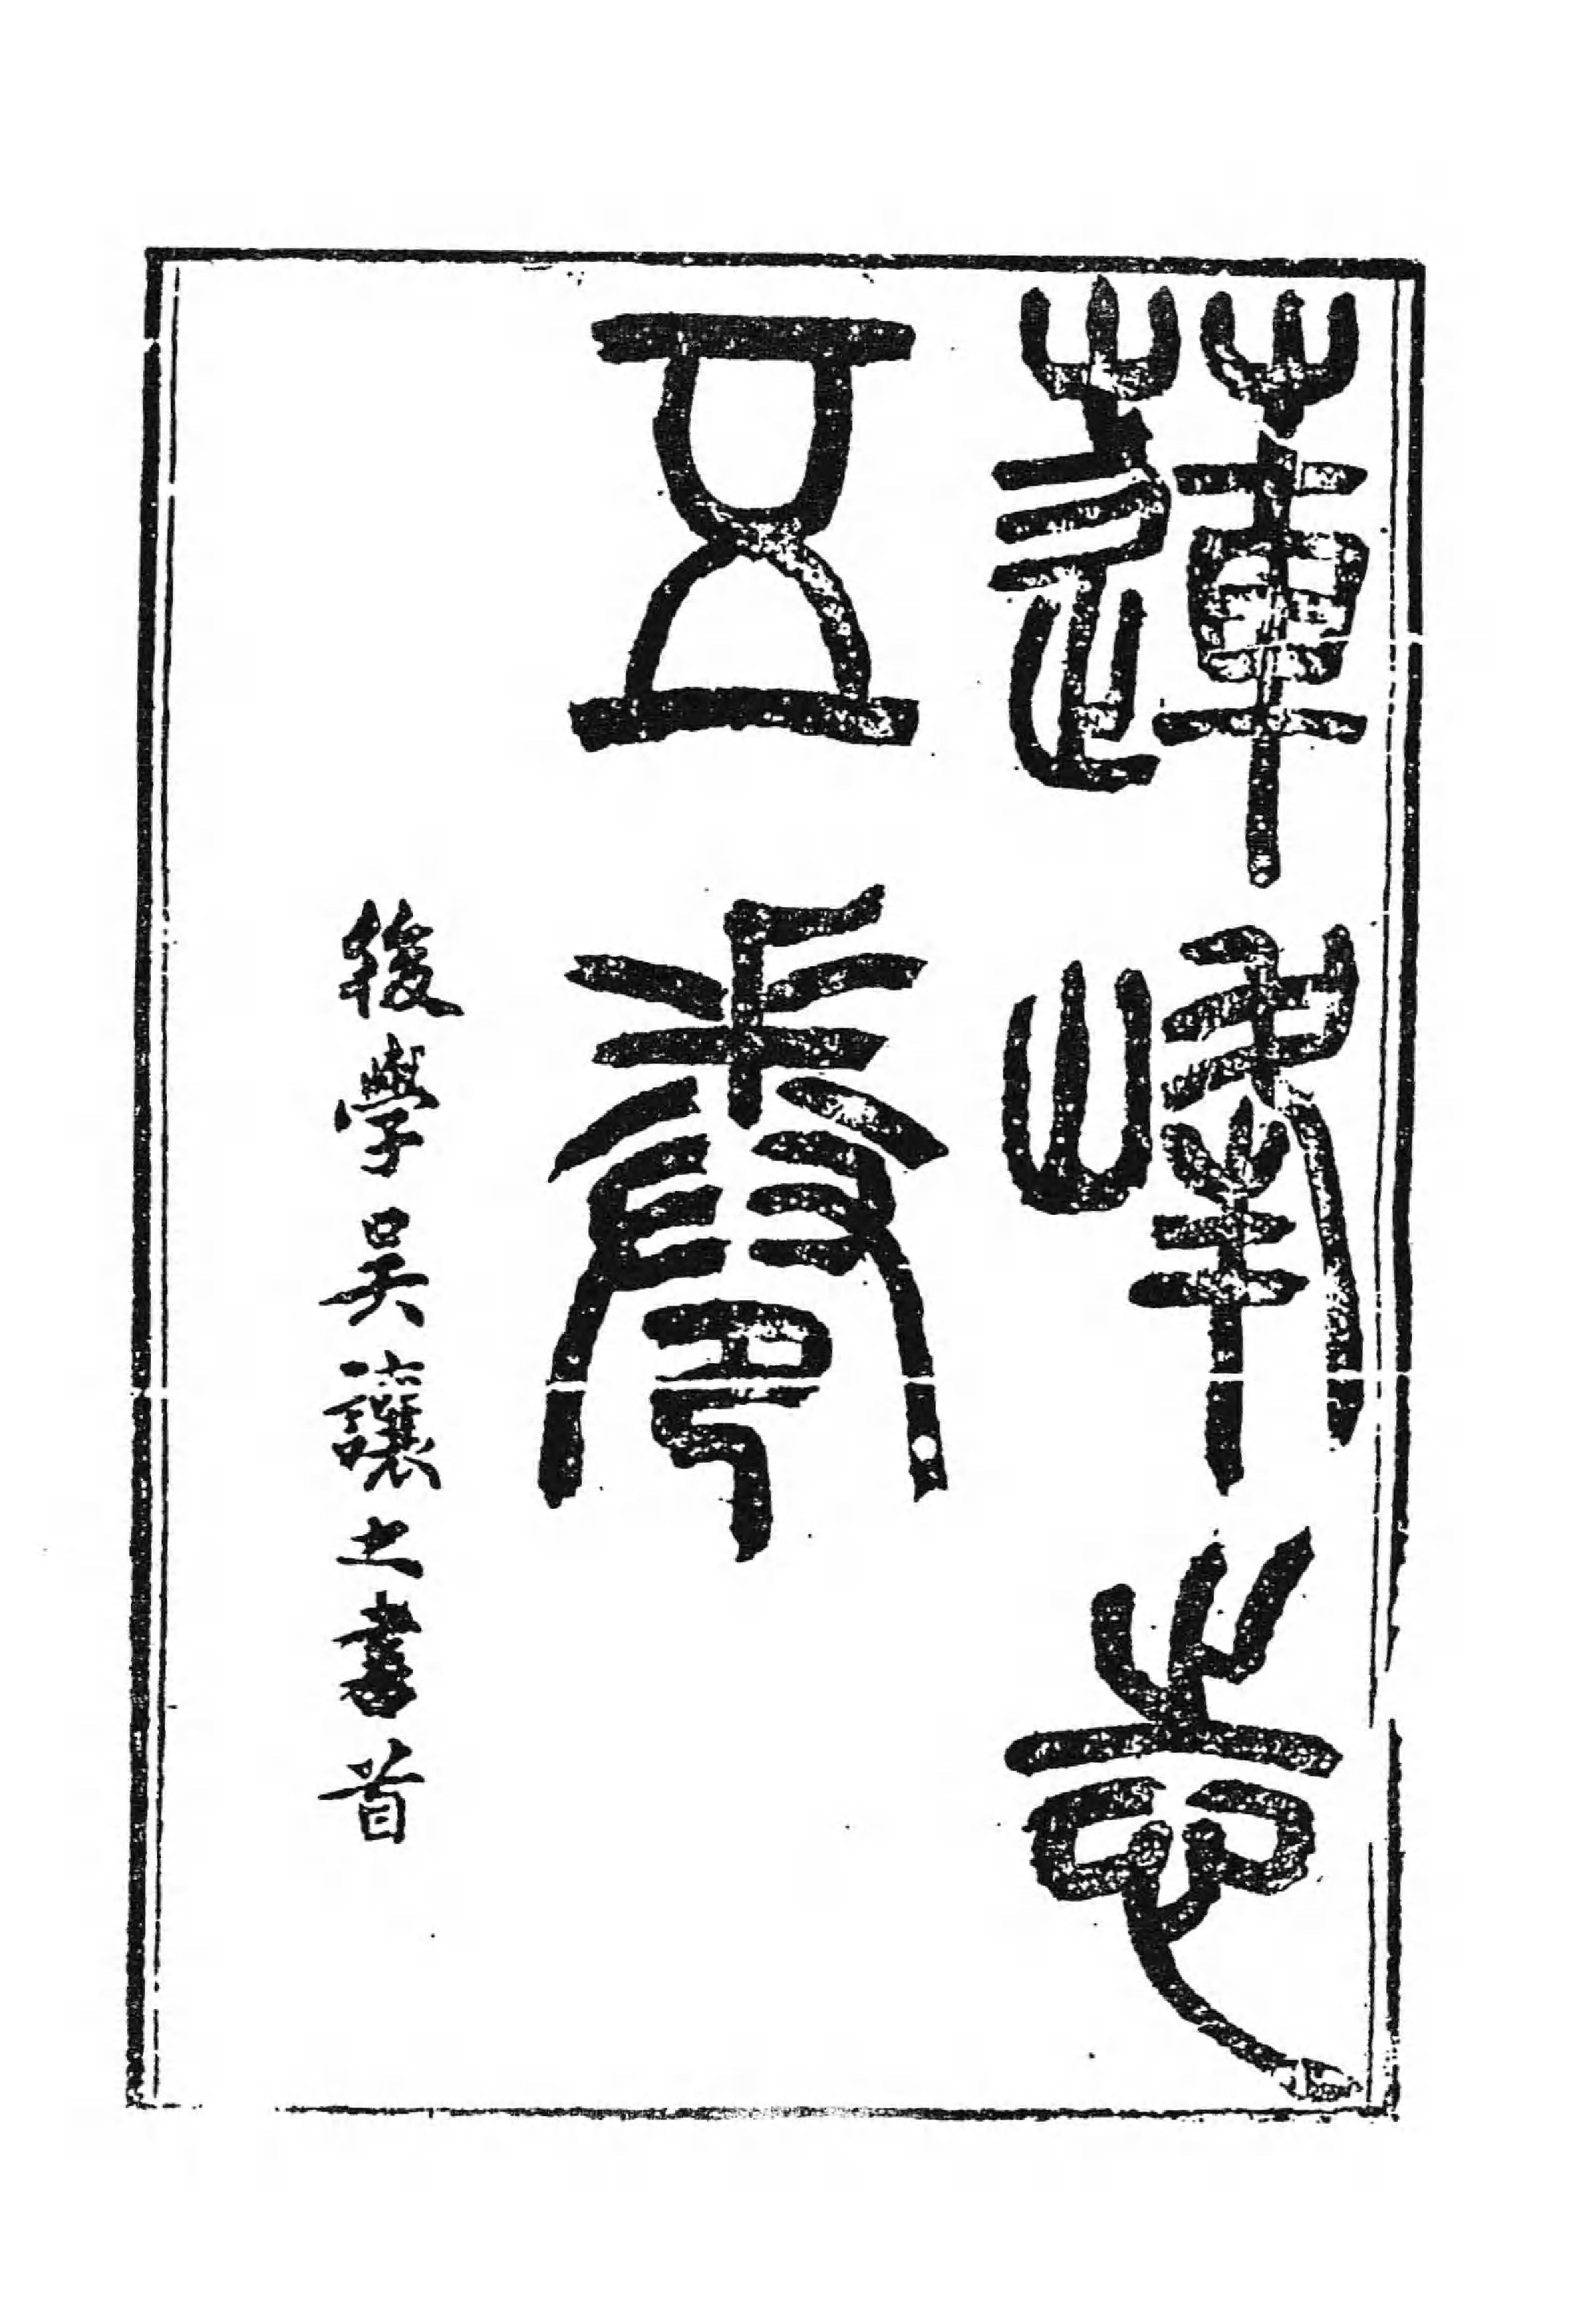 蓮峰志
五卷
後學吳讓之書首